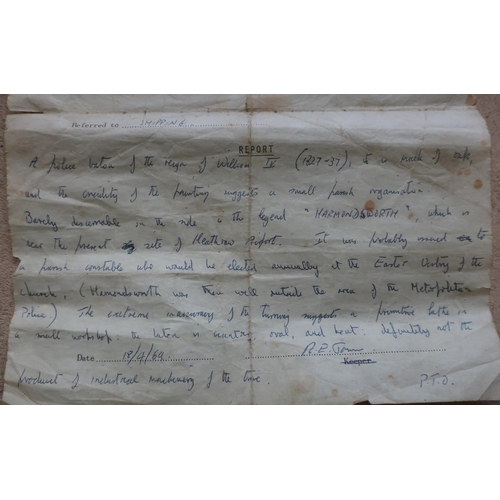 Referred to ...... SHIPPING ......
REPORT
A police baton of the reign of William IV (1827-37), it is made of oak,
and the crudity of the painting suggests a small parish organisation.
Barely discernable on the side is the legend "HARMONDSWORTH", which is
near the present site of Heathrow Airport. It was probably issued to
a parish constable who would be elected annually at the Easter Vestry of the
church, (Harmondsworth was then well outside the area of the Metropolitan
Police) The extreme inaccuracy of the turning suggests a primitive lathe in
a small workshop: the baton is in section oval, and bent: definitely not the
Date 18/4/69
Keeper
product of industrial machinery of the time.
P.T.O.